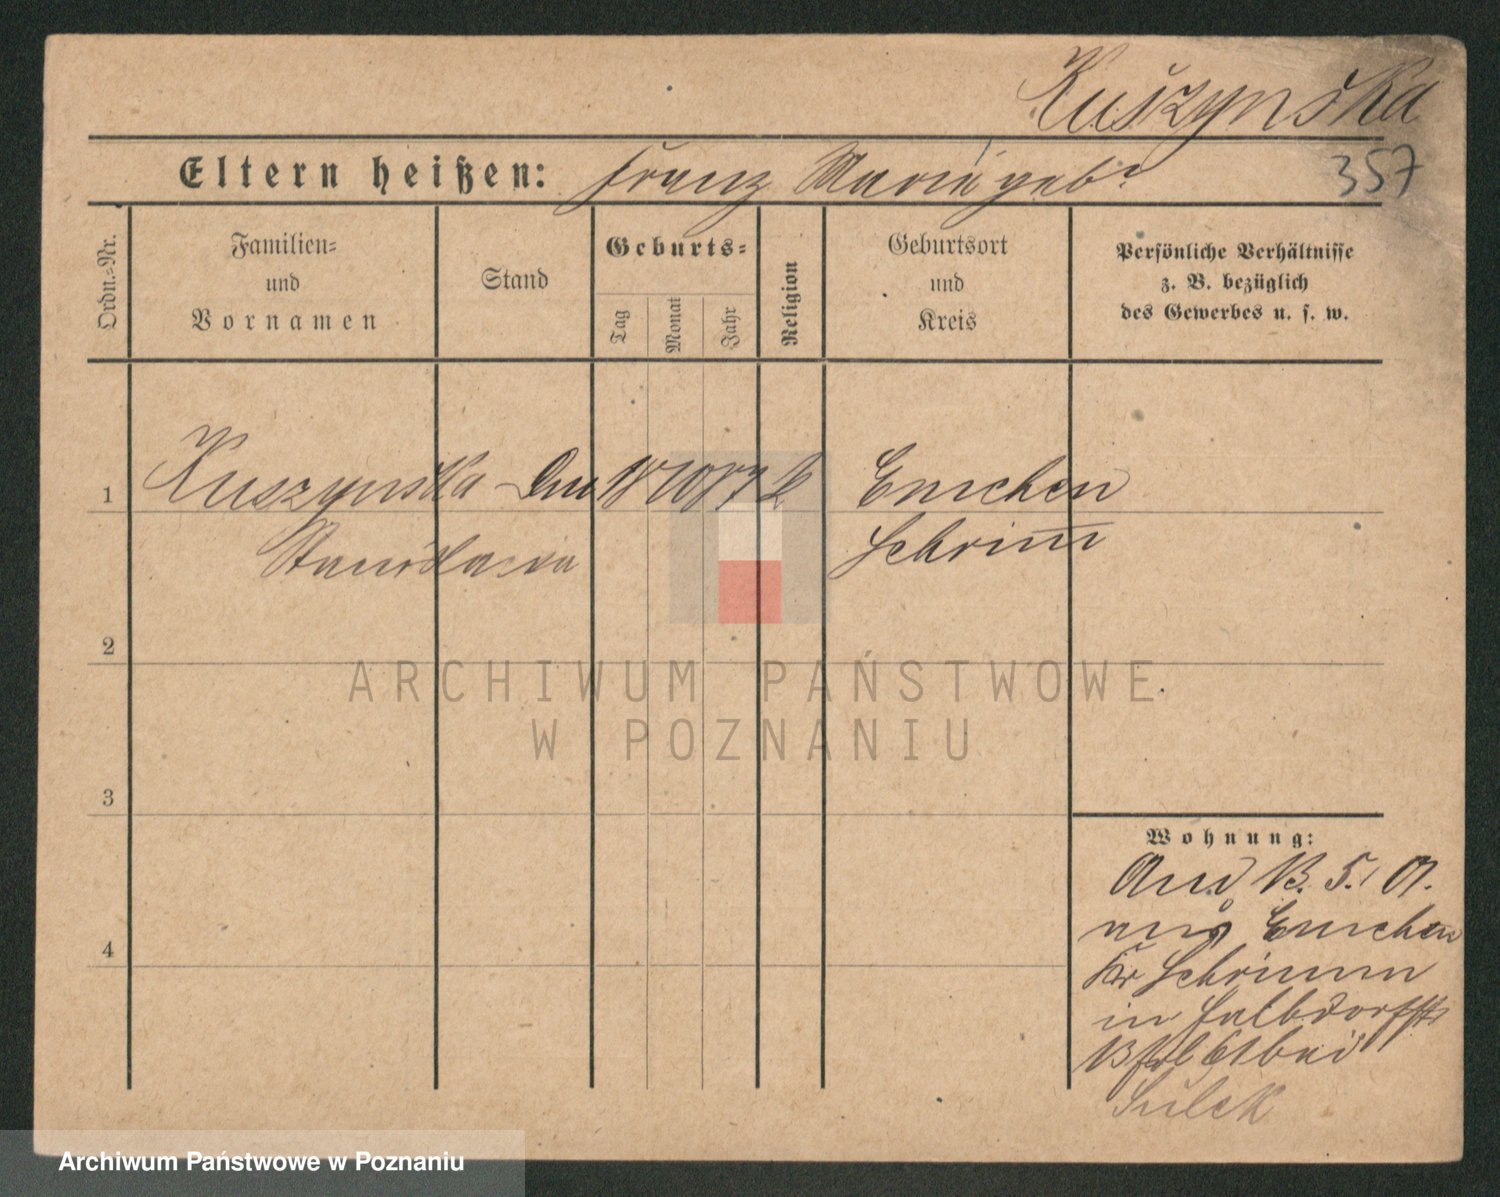 Kuszynska
Eltern heißen: Franz Marie geb.
357
Ordn.=Nr.
Familien=
und
Vornamen
Stand
Geburts=
Tag
Monat
Jahr
Religion
Geburtsort
und
Kreis
Persönliche Verhältnisse
z. B. bezüglich
des Gewerbes u. s. w.
1
Kuszynska
Stanislawa
18 10 87
Emchen
Schrim
2
3
4
Wohnung:
13. 5. 07.
aus Emchen
Kr Schrimm
in
bei
ARCHIWUM PAŃSTWOWE
W POZNANIU
Archiwum Państwowe w Poznaniu